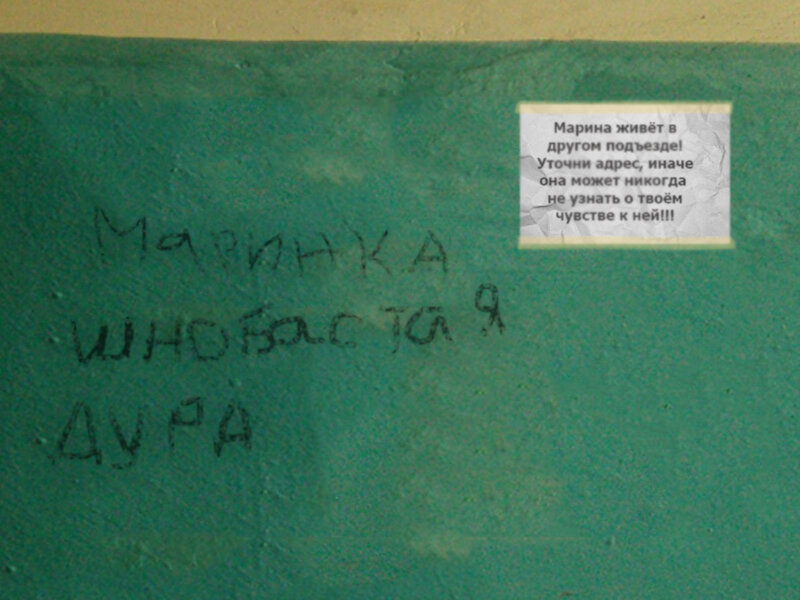 Марина живёт в
другом подъезде!
Уточни адрес, иначе
она может никогда
не узнать о твоём
чувстве к ней!!!
МаРИНКА
ШНОБаСТаЯ
ДУРА